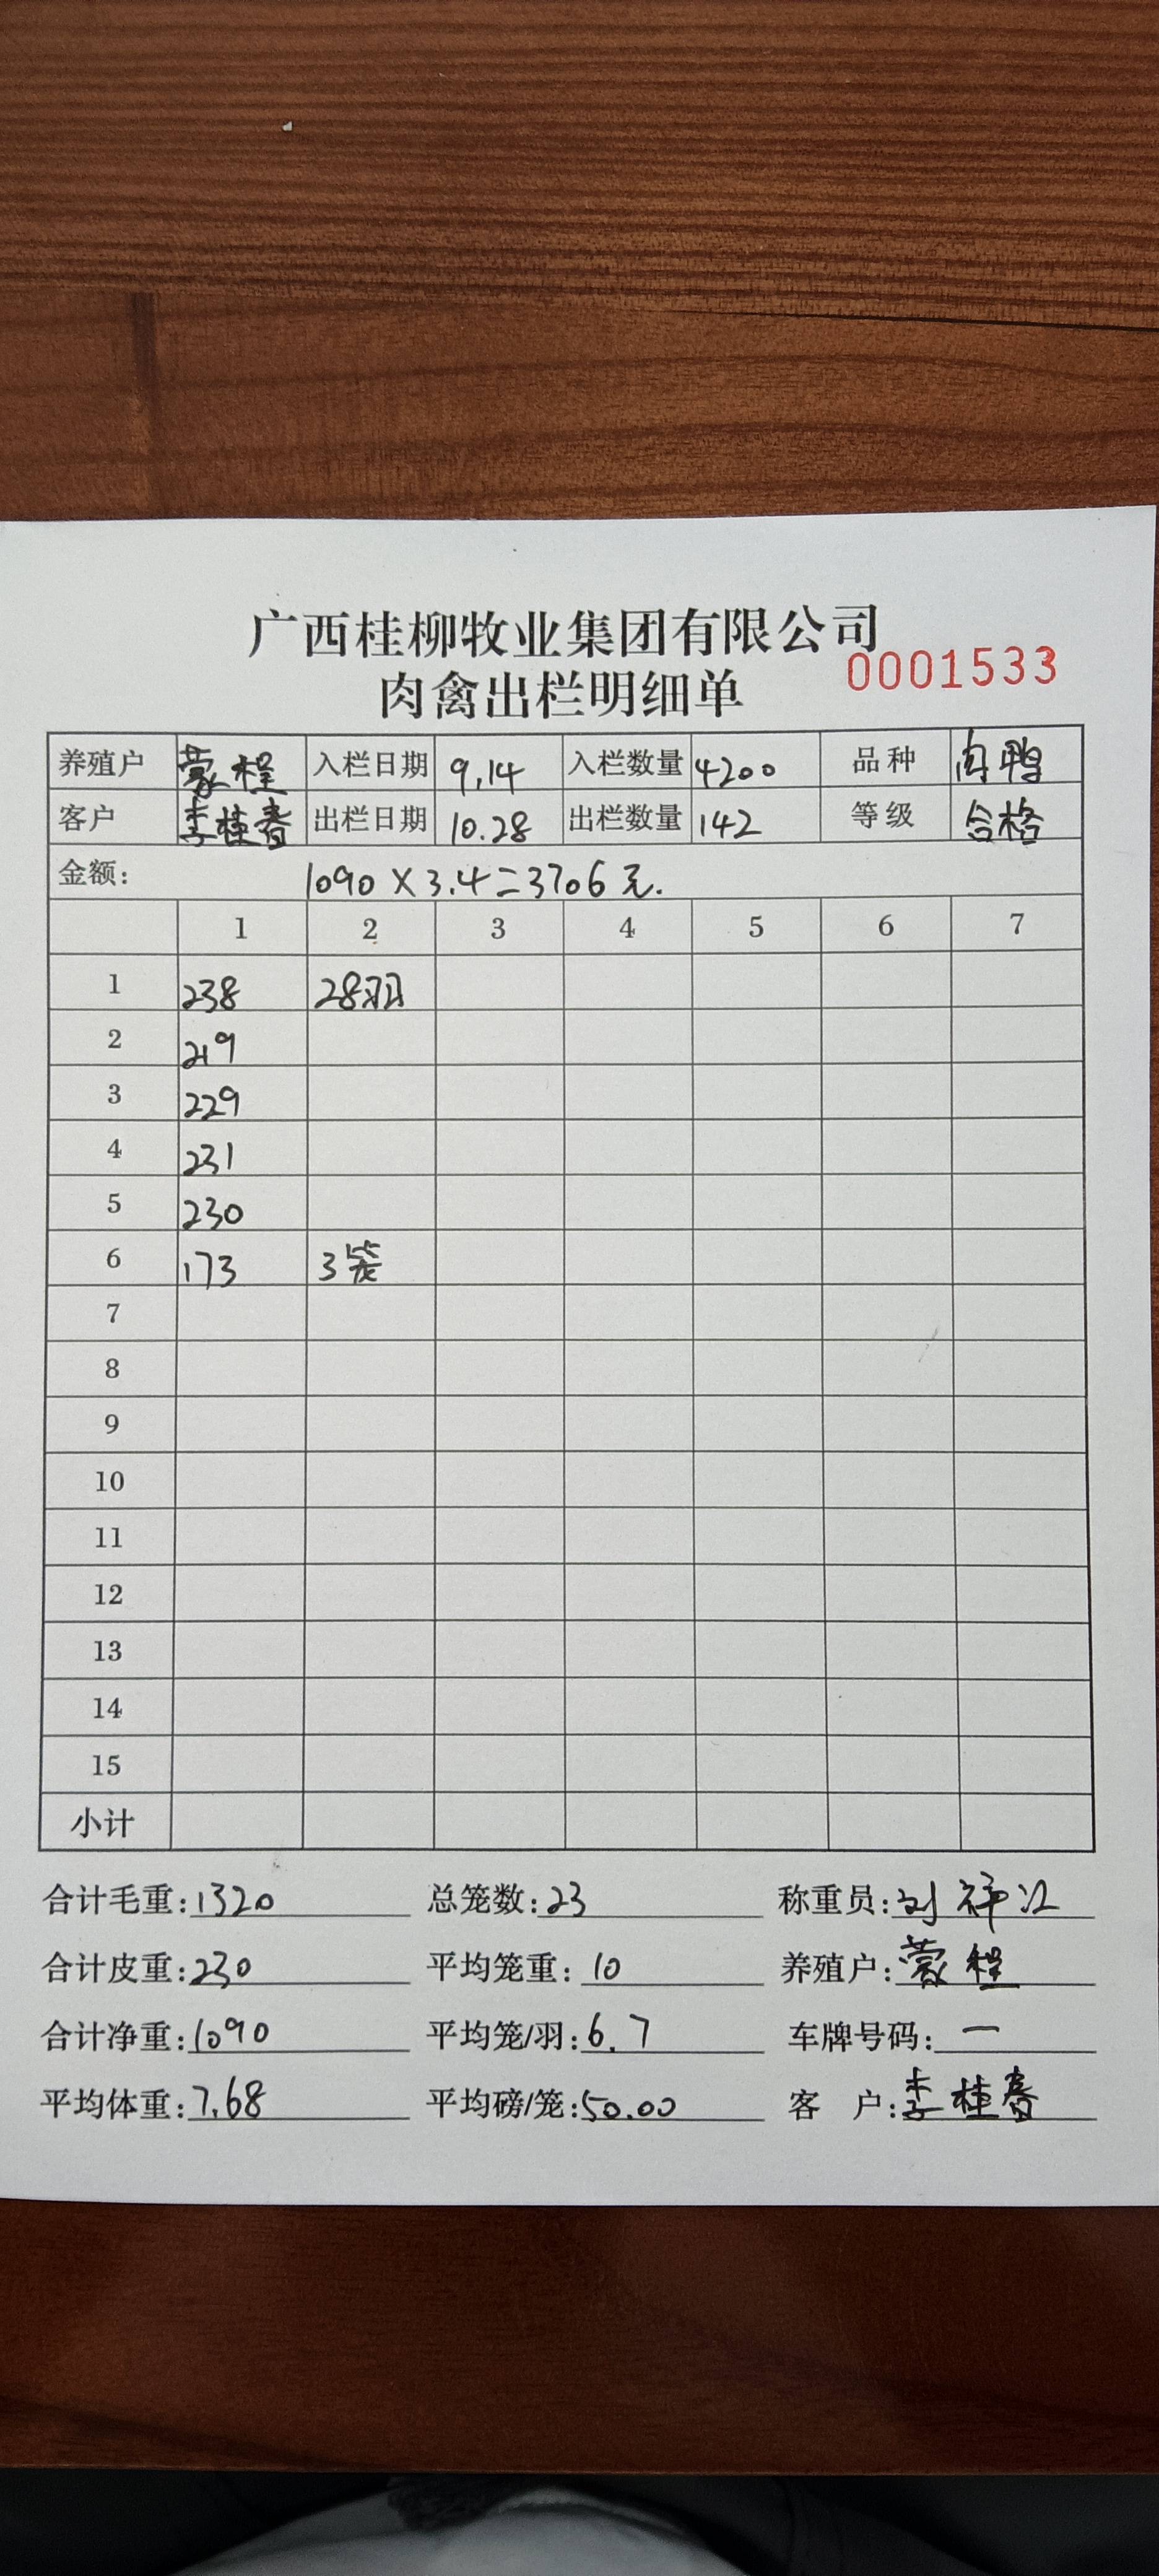 广西桂柳牧业集团有限公司
肉禽出栏明细单 0001533
养殖户 蒙程 入栏日期 9.14 入栏数量 4200 品种 肉鸭
客户 李桂春 出栏日期 10.28 出栏数量 142 等级 合格
金额: 1090×3.4=3706元.
1 2 3 4 5 6 7
1 238 28羽
2 219
3 229
4 231
5 230
6 173 3笼
7
8
9
10
11
12
13
14
15
小计
合计毛重:1320 总笼数:23 称重员:刘
合计皮重:230 平均笼重:10 养殖户:蒙程
合计净重:1090 平均笼/羽:6.7 车牌号码:一
平均体重:7.68 平均磅/笼:50.00 客户:李桂春